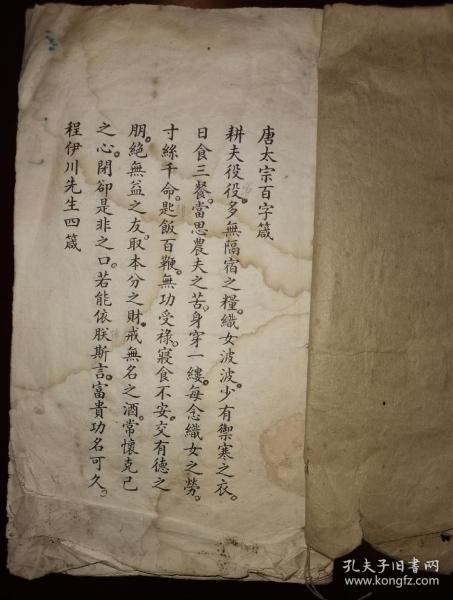 唐太宗百字箴
耕夫役役。多無隔宿之糧。織女波波。少有禦寒之衣。
日食三餐。當思農夫之苦。身穿一縷。每念織女之勞。
寸絲千命。匙飯百鞭。無功受祿。寢食不安。交有德之
朋。絕無益之友。取本分之財。戒無名之酒。常懷克己
之心。閉卻是非之口。若能依朕斯言。富貴功名可久。
程伊川先生四箴
孔夫子旧书网
www.kongfz.com